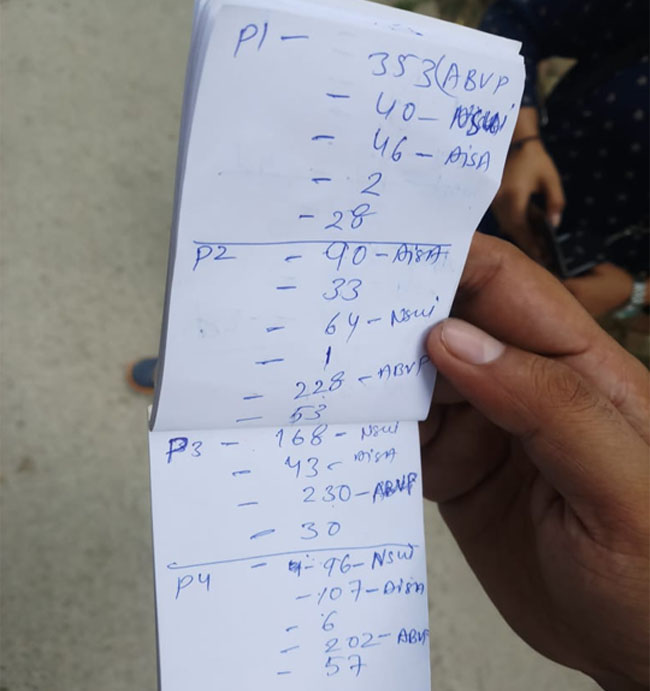 P1 -
353(ABVP
- 40 - NSUI
- 46 - AISA
- 2
- 28
P2 - 90 - AISA
- 33
- 64 - NSUI
- 1
- 228 - ABVP
- 53
P3 - 168 - NSUI
- 43 - AISA
- 230 - ABVP
- 30
P4 - 96 - NSUI
- 107 - AISA
- 6
- 202 - ABVP
- 57